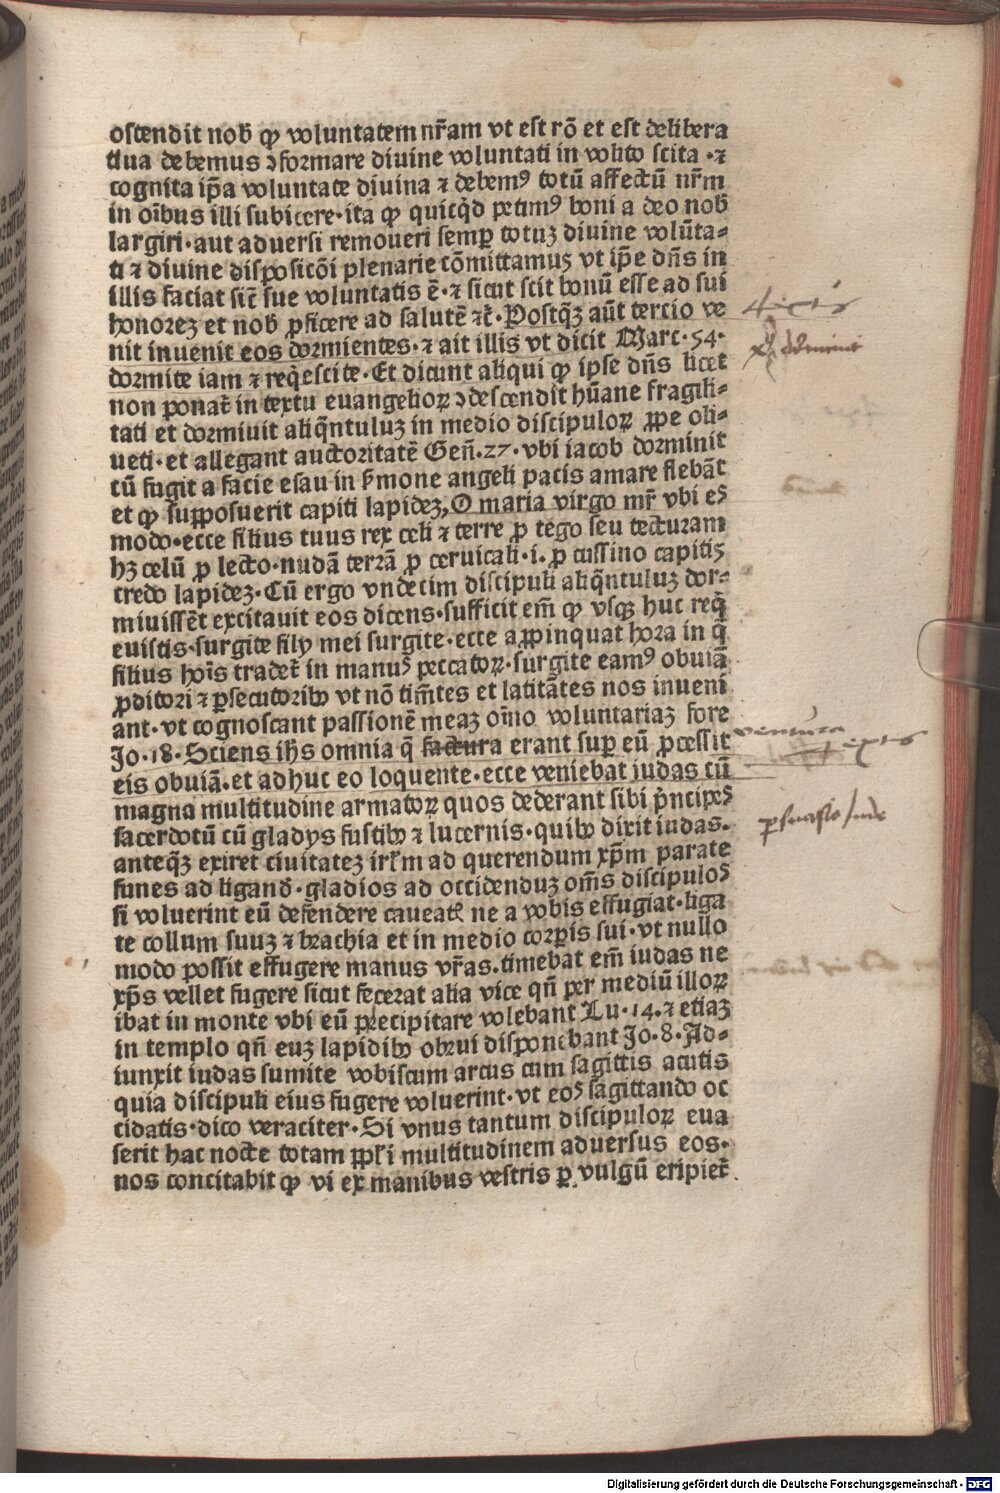 ostendit nob̄ ꝙ voluntatem nr̄am vt est rō et est delibera
tiua debemus ꝯformare diuine voluntati in volito scita ·⁊
cognita ip̄a voluntate diuina ⁊ debemꝰ totū affectū nr̄m
in oībus illi subicere·ita ꝙ quicq̇d petimꝰ boni a deo nob̄
largiri·aut aduersi remoueri semꝑ totuz diuine volūta-
ti ⁊ diuine disposicōi plenarie cōmittamuꝫ vt ip̄e dn̄s in
illis faciat sic̄ sue voluntatis ē·⁊ sicut scit bonū esse ad sui
honoreꝫ et nob̄ ꝓficere ad salutē ⁊c̄·Postqꝫ aūt tercio ve
nit inuenit eos dormientes·⁊ ait illis vt dicit Marc·54·
dormite iam ⁊ req̇escite·Et dicunt aliqui ꝙ ipse dn̄s licet
non ponat̄ in textu euangelioꝝ ꝯdescendit hūane fragili-
tati et dormiuit aliq̄ntuluꝫ in medio discipuloꝝ ꝓpe oli-
ueti·et allegant auctoritatē Gen̄·27·vbi iacob dorminit
cū fugit a facie esau in s̄mone angeli pacis amare flebāt
et ꝙ supposuerit capiti lapideꝫ,O maria virgo mr̄ vbi eꝰ
modo·ecce filius tuus rex celi ⁊ terre ꝓ tego seu tecturam
hꝫ celū ꝓ lecto·nudā terrā ꝓ ceruicali·i·ꝓ cussino capitiꝫ
credo lapideꝫ·Cū ergo vndecim discipuli aliq̄ntuluꝫ dor-
miuissēt excitauit eos dicens·sufficit em̄ ꝙ vsqꝫ huc req̇
euistis·surgite filij mei surgite·ecce aꝓpinquat hora in q̄
filius hoīs tradet̄ in manuꝰ peccatoꝝ·surgite eamꝰ obuiā
ꝓditori ⁊ ꝑsecutoribꝰ vt nō tim̄tes et latitātes nos inueni
ant·vt cognoscant passionē meaꝫ oīno voluntariaꝫ fore
Jo·18·Sciens ih̄s omnia q̄ factura erant suꝑ eū ꝓcessit
eis obuiā·et adhuc eo loquente·ecce veniebat iudas cū
magna multitudine armatoꝝ quos dederant sibi p̄ncipeꝰ
sacerdotū cū gladys fustibꝰ ⁊ lucernis·quibꝰ dixit iudas·
anteqꝫ exiret ciuitateꝫ irl̄m ad querendum xp̄m parate
funes ad ligand̄·gladios ad occidenduꝫ om̄s discipuloꝰ
si voluerint eū defendere caueat̄ ne a vobis effugiat·liga
te collum suuꝫ ⁊ brachia et in medio corꝑis sui·vt nullo
modo possit effugere manus vr̄as.timebat em̄ iudas ne
xp̄s vellet fugere sicut fecerat alia vice qn̄ per mediū illoꝝ
ibat in monte vbi eū precipitare volebant Lu·14·⁊ etiaꝫ
in templo qn̄ euꝫ lapidibꝰ obrui disponebant Jo·8·Ad-
iunxit iudas sumite vobiscum arcus cum sagittis acutis
quia discipuli eius fugere voluerint·vt eoꝰ sagittando oc
cidatis·dico veraciter·Si vnus tantum discipuloꝝ eua
serit hac nocte totam ppl̄i multitudinem aduersus eos·
nos concitabit ꝙ vi ex manibus vestris ꝑ vulgū eripiet̄
ventura
Digitalisierung gefördert durch die Deutsche Forschungsgemeinschaft · DFG